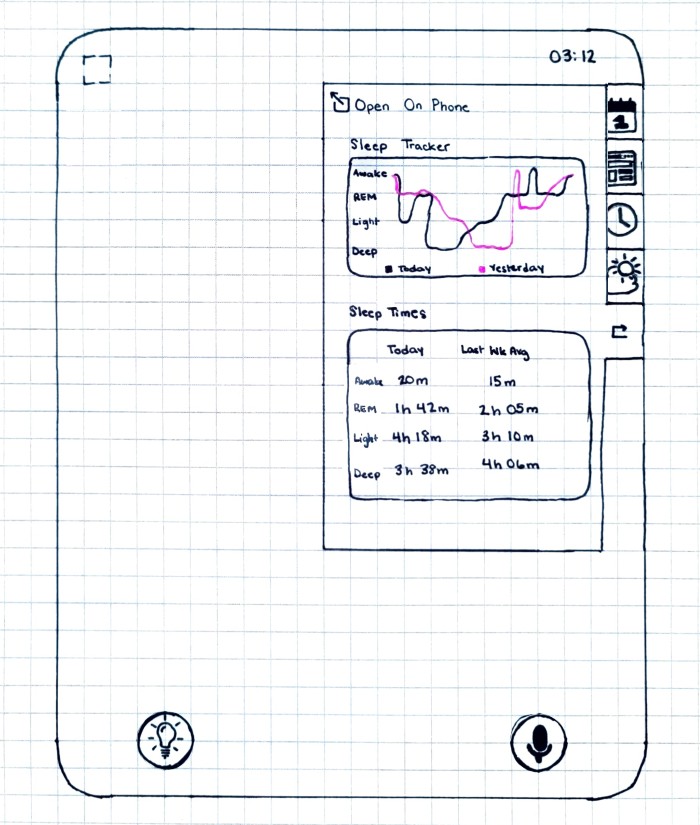 03:12
Open On Phone
1
Sleep Tracker
Awake
REM
Light
Deep
Today Yesterday
Sleep Times
Today Last Wk Avg
Awake 20m 15m
REM 1h 42m 2h 05m
Light 4h 18m 3h 10m
Deep 3h 38m 4h 06m